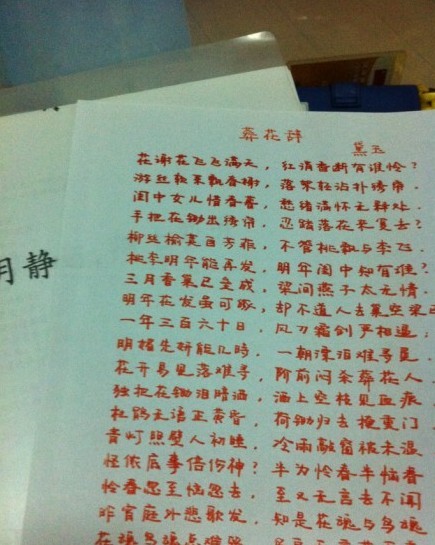 葬花辞
黛玉
花谢花飞飞满天，红消香断有谁怜？
游丝软系飘春榭，落絮轻沾扑绣帘。
闺中女儿惜春暮，愁绪满怀无释处。
手把花锄出绣帘，忍踏落花来复去？
柳丝榆荚自芳菲，不管桃飘与李飞。
桃李明年能再发，明年闺中知有谁？
三月香巢已垒成，梁间燕子太无情。
明年花发虽可啄，却不道人去巢空梁已
一年三百六十日，风刀霜剑严相逼；
明媚鲜妍能几时，一朝漂泊难寻觅。
花开易见落难寻，阶前闷杀葬花人。
独把花锄泪暗洒，洒上空枝见血痕
杜鹃无语正黄昏，荷锄归去掩重门
青灯照壁人初睡，冷雨敲窗被未温
怪侬底事倍伤神？半为怜春半恼春
怜春忽至恼忽去，至又无言去不闻
昨宵庭外悲歌发，知是花魂与鸟魂
花魂鸟魂总难留
月静